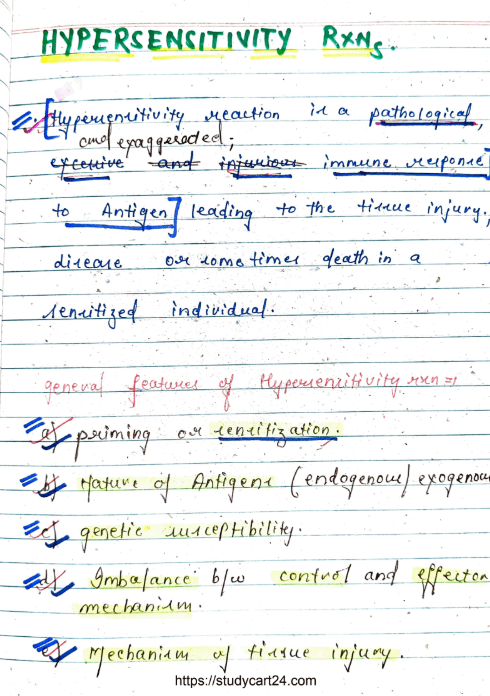 HYPERSENSITIVITY RXNs.
Hypersensitivity reaction is a pathological,
and exaggerated;
excessive and injurious immune response
to Antigen] leading to the tissue injury,
disease or some times death in a
sensitized individual.
general features of Hypersensitivity rxn =>
a) priming or sensitization.
b) Nature of Antigens (endogenous/exogenous
c) genetic susceptibility.
d) Imbalance b/w control and effector
mechanism.
e) Mechanism of tissue injury.
https://studycart24.com